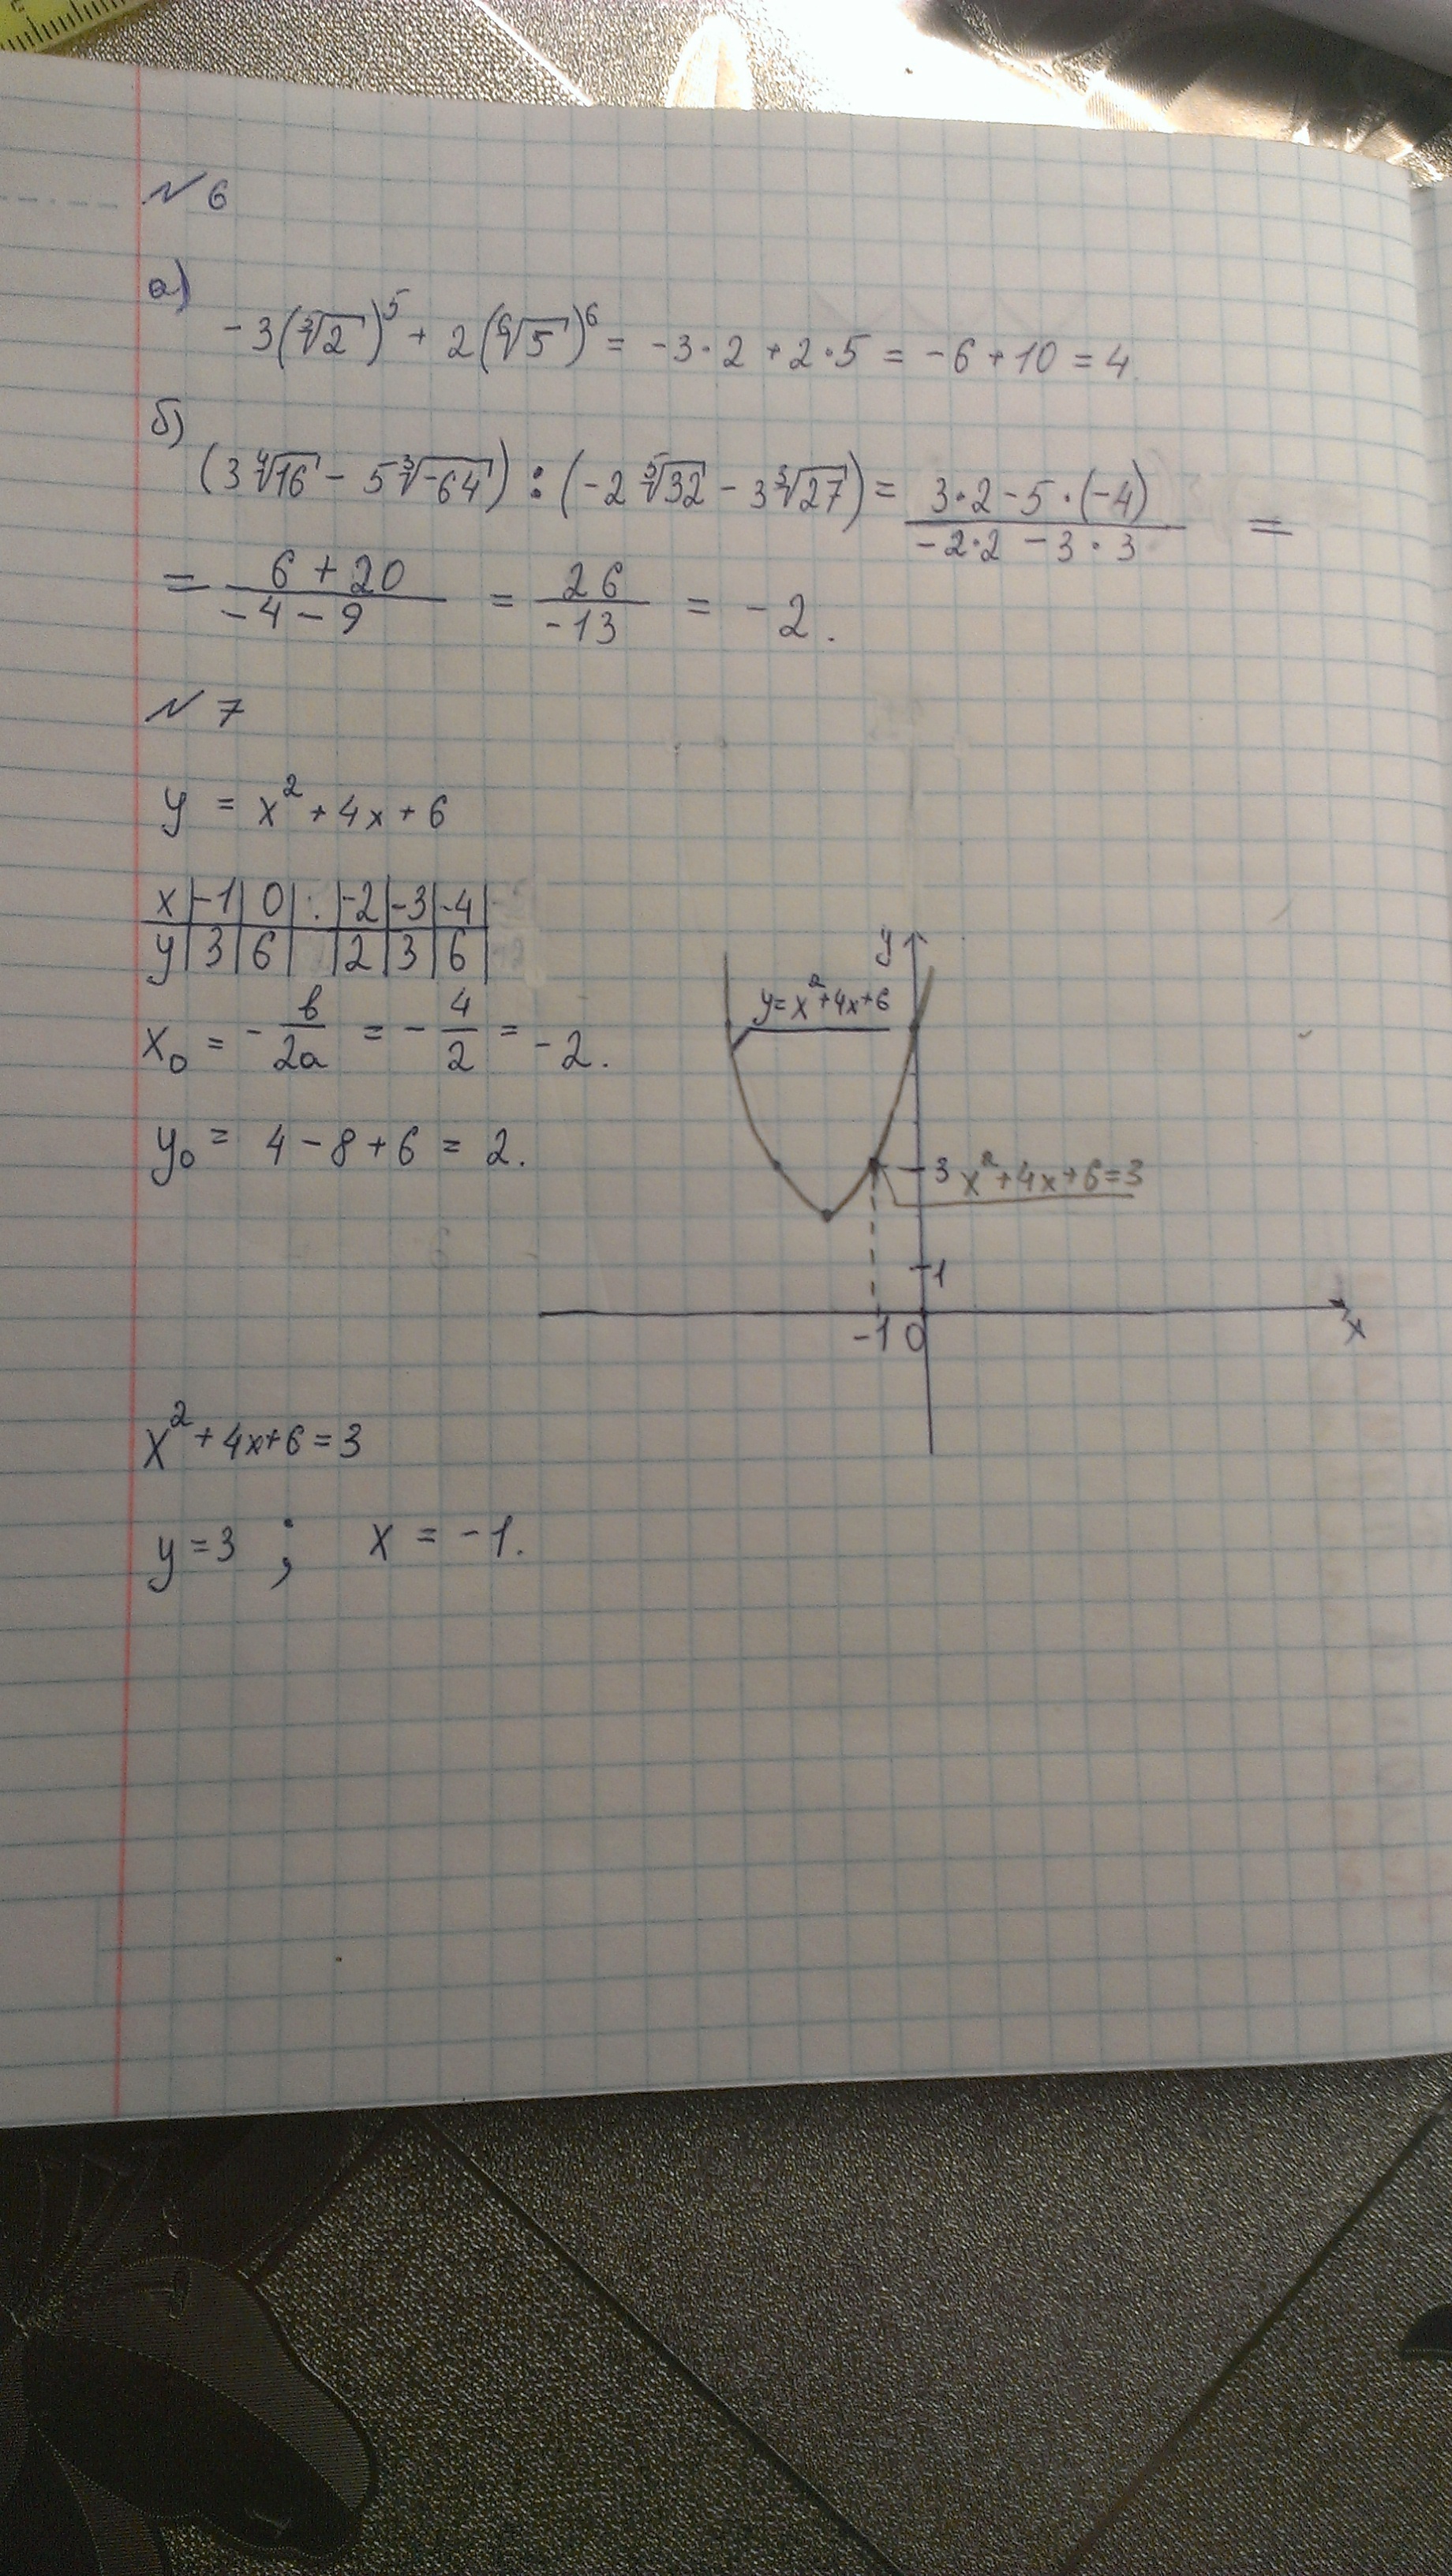 № 6
а)
-3(∛2)⁵ + 2(⁶√5)⁶ = -3·2 + 2·5 = -6 + 10 = 4.
б)
(3⁴√16 - 5∛-64) : (-2⁵√32 - 3∛27) = (3·2 - 5·(-4))/(-2·2 - 3·3) =
= (6 + 20)/(-4 - 9) = 26/-13 = -2.
№ 7
y = x² + 4x + 6
x | -1 | 0 | . | -2 | -3 | -4 |
y | 3 | 6 | | 2 | 3 | 6 |
x₀ = - b/2a = - 4/2 = -2.
y₀ = 4 - 8 + 6 = 2.
y
y = x² + 4x + 6
3 x² + 4x + 6 = 3
1
-1 0 x
x² + 4x + 6 = 3
y = 3 ; x = -1.